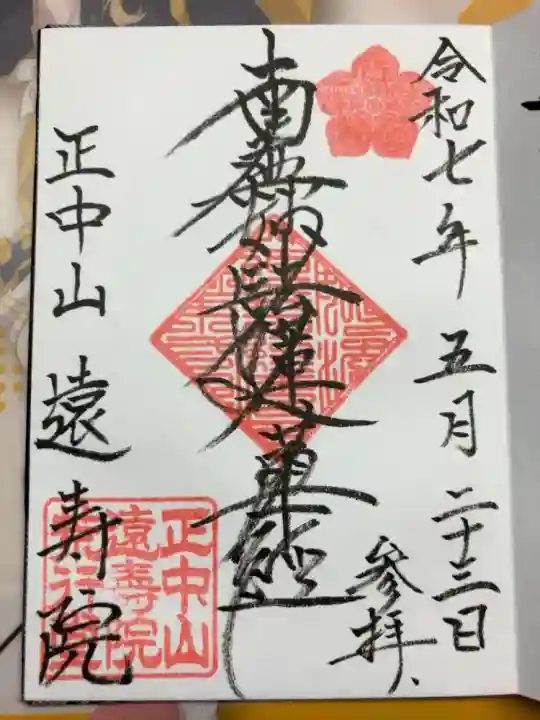 令和七年 五月 二十三日
参拝
南無妙法蓮華経
正中山 遠寿院
正中山
遠寿院
荒行堂